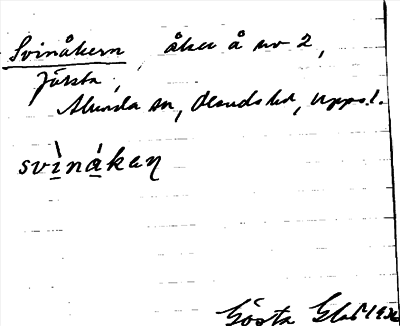 Svinåkern, åker å nr 2,
Järsta,
Alunda sn, Olands hd, Uppsl.
svinåkaɳ
Gösta